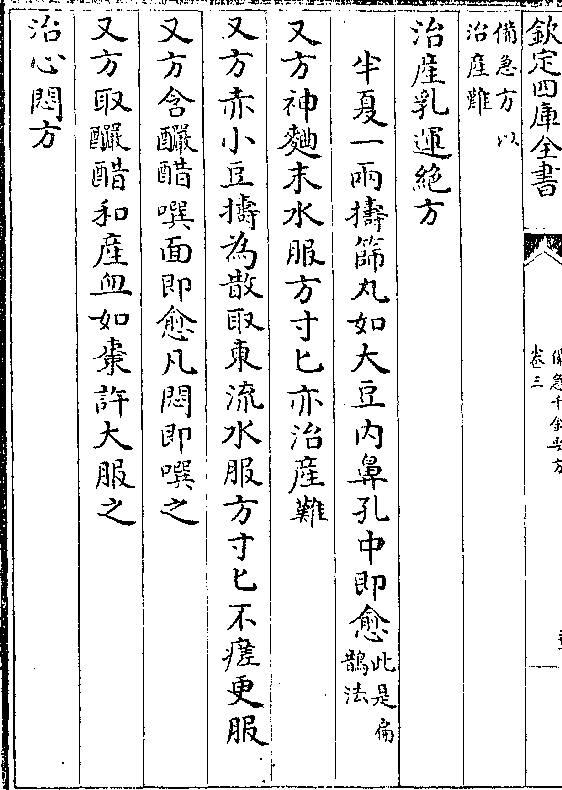 欽定四庫全書
備急千金要方
卷三
備急方以
治產難
治產乳運絶方
半夏一兩擣篩丸如大豆内鼻孔中即愈此是扁鵲法
又方神麴末水服方寸匕亦治產難
又方赤小豆擣為散取東流水服方寸匕不瘥更服
又方含釅醋噀面即愈凡悶即噀之
又方取釅醋和產血如棗許大服之
治心悶方